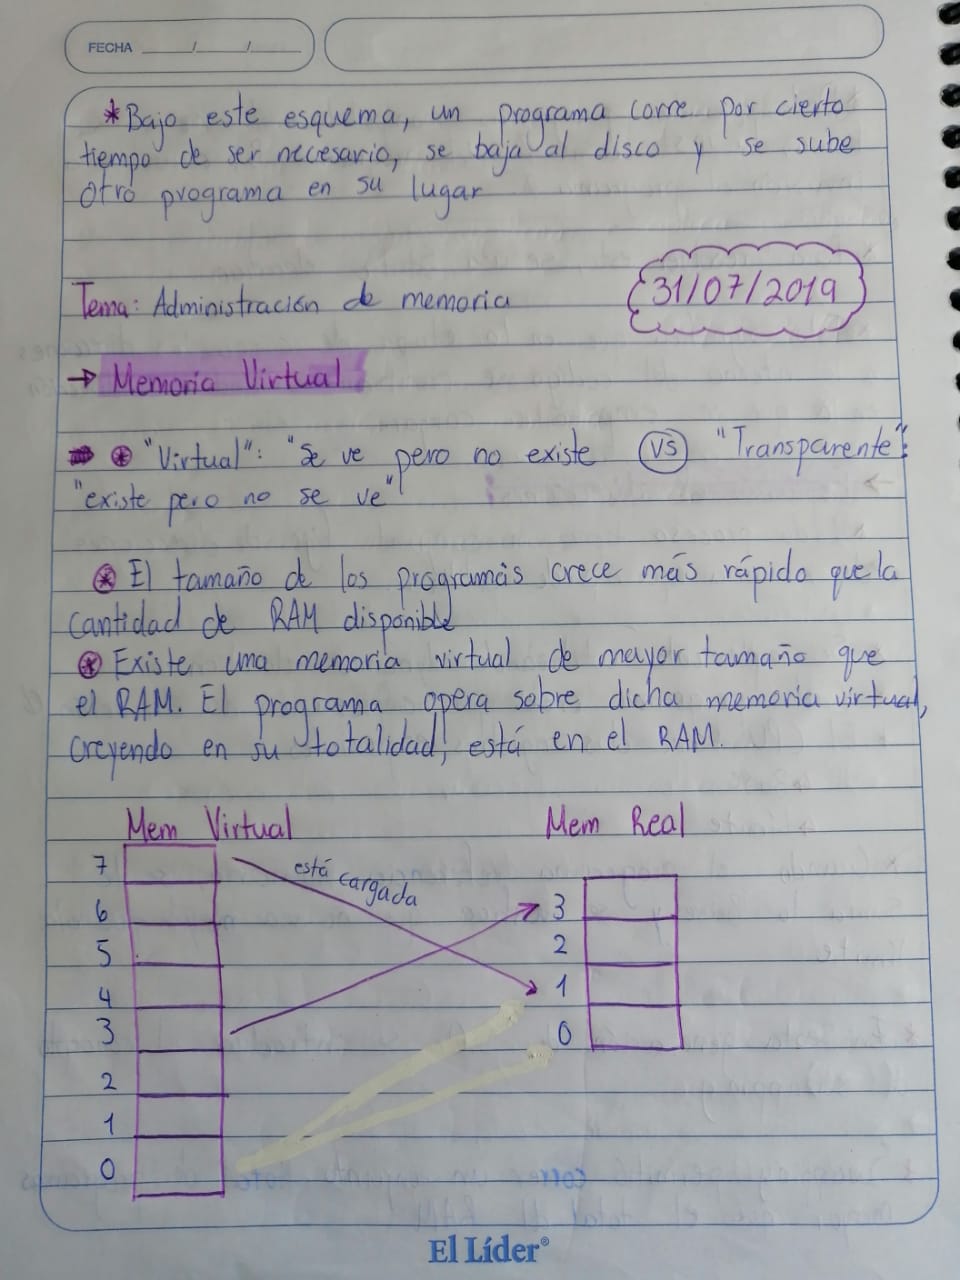 FECHA ____/____/____
* Bajo este esquema, un programa corre por cierto
tiempo de ser necesario, se baja al disco y se sube
otro programa en su lugar
Tema: Administración de memoria
31/07/2019
→ Memoria Virtual
"Virtual": "Se ve pero no existe VS "Transparente":
"existe pero no se ve"
El tamaño de los programas crece más rápido que la
cantidad de RAM disponible
Existe una memoria virtual de mayor tamaño que
el RAM. El programa opera sobre dicha memoria virtual,
creyendo en su totalidad, está en el RAM.
Mem Virtual
Mem Real
está cargada
7
6
5
4
3
2
1
0
3
2
1
0
El Líder®